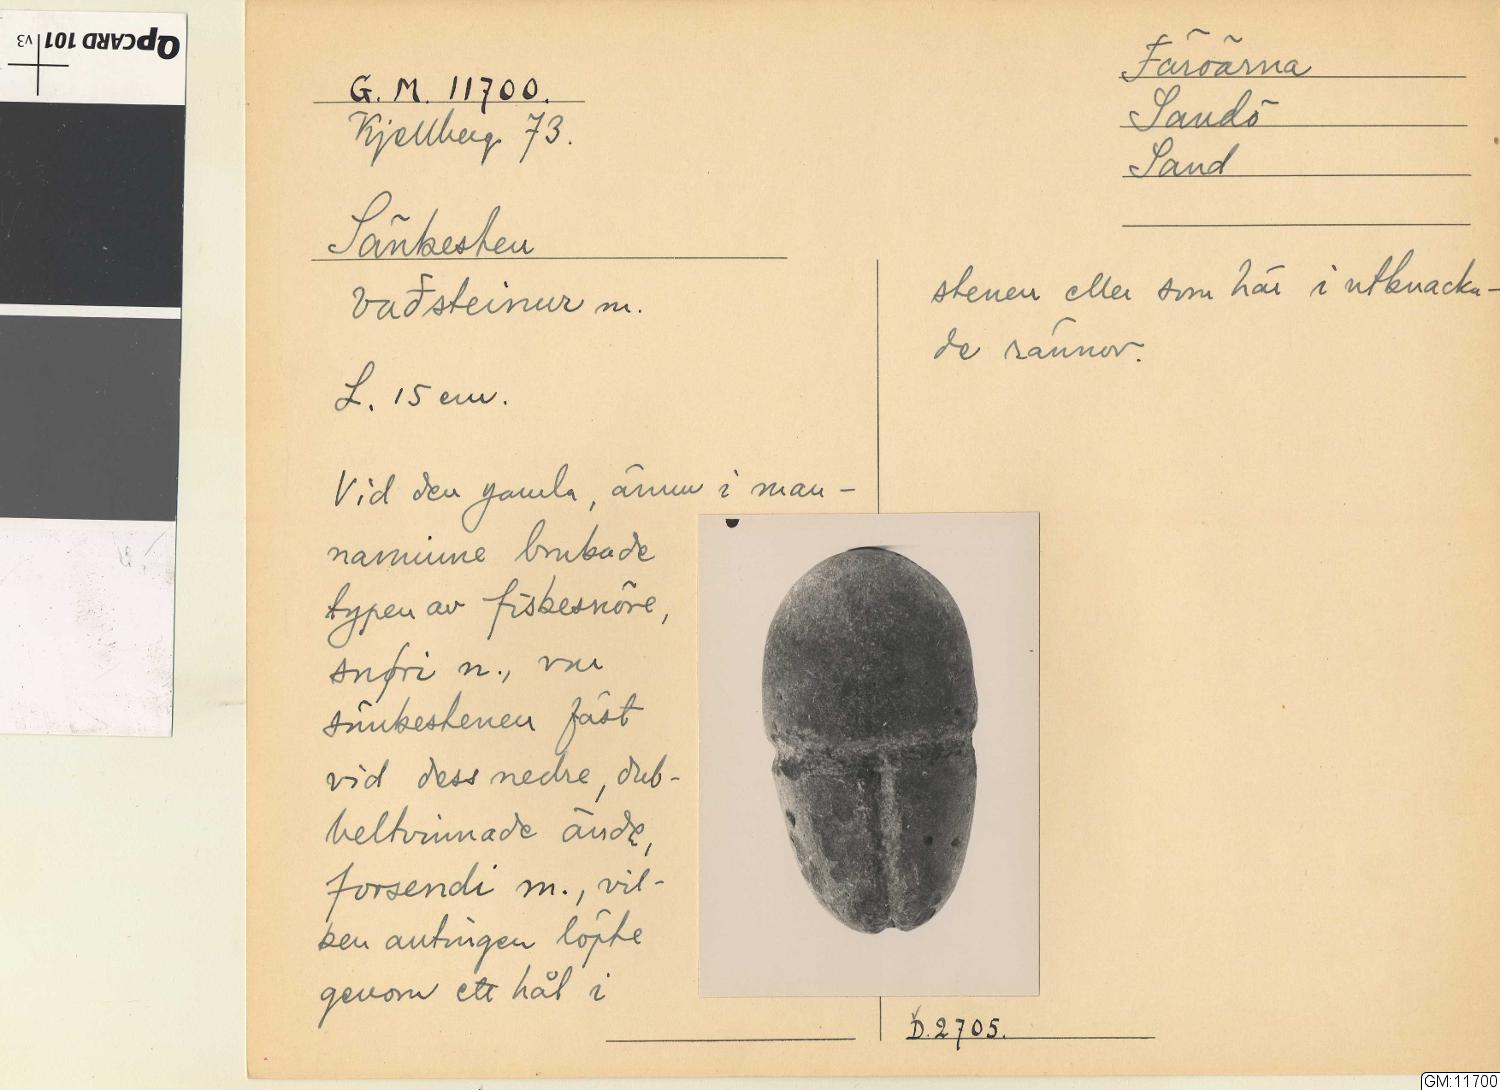 QpCARD 101 v3
G. M. 11700.
Kjellberg 73.
Färöarna
Sandö
Sand
Sänkesten
vaðsteinur m.
L. 15 cm.
Vid den gamla, ännu i man-
naminne brukade
typen av fiskesnöre,
snøri n., var
sänkestenen fäst
vid dess nedre, dub-
beltvinnade ände,
forsendi m., vil-
ken antingen löpte
genom ett hål i
stenen eller som här i utknacka-
de rännor.
D. 2705.
GM:11700